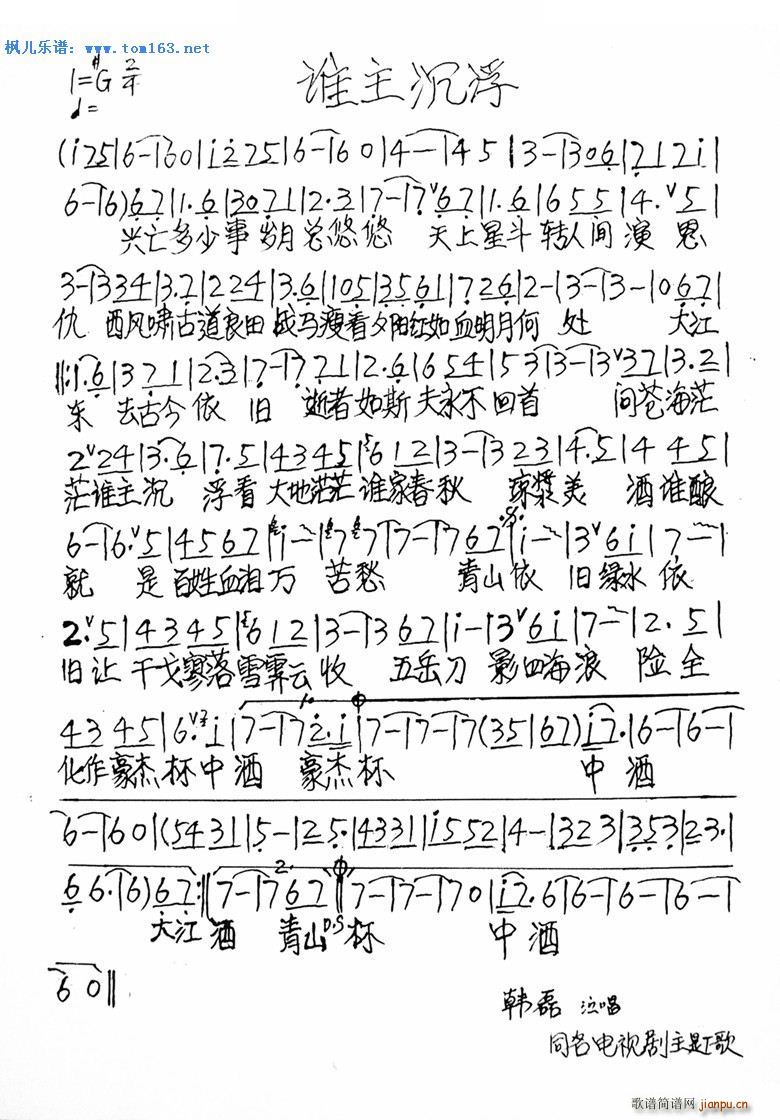 枫儿乐谱：www.tom163.net
1=#G 2/4
谁主沉浮
♩=
(i̇ 2 7 5 | 6 - | 6 0 | i̇ 2̇ 7 5 | 6 - | 6 0 | 4 - | 4 5 | 3 - | 3 0 6 | 7 1 7 i |
6 - | 6) 6 7 | 1. 6 | 3 0 7 1 | 2. 3 | 7 - | 7 ᵛ 6 7 | 1. 6 | 6 5 5 | 4. ᵛ 5 |
兴亡多少事 岁月总悠悠 天上星斗转人间演 恩
3 - | 3 3 4 | 3. 7 | 2 2 4 | 3. 6 | 1 0 5 | 3 5 6 1 | 7 2 6 | 2 - | 3 - | 3 - | 0 6 7 |
仇 西风啸古道良田 战马瘦看夕阳红如血明月何 处 大江
‖: 1. 6 | 3 7 1 | 2. 3 | 7 - | 7 7 1 | 2. 6 | 6 5 4 | 5 3 | 3 - | 3 ᵛ 3 7 | 3. 2 |
东 去古今依 旧 逝者如斯夫永不回首 问苍海茫
2 ᵛ 2 4 | 3. 6 | 7. 5 | 4 3 4 5 | 6 1 2 | 3 - | 3 2 3 | 4. 5 | 4 4 5 |
茫谁主沉 浮看大地茫茫谁家春秋 琼浆美 酒谁酿
6 - | 6. ᵛ 5 | 4 5 6 7 | i - | 7 7 | 7 - | 7 6 7 | i - | 3 ᵛ 6 i | 7 - |
就 是百姓血泪万 苦愁 青山依 旧绿水依
2. ᵛ 5 | 4 3 4 5 | 6 1 2 | 3 - | 3 6 7 | i - | 3 ᵛ 6 i | 7 - | 2. 5 |
旧让干戈寥落雪霁云收 五岳刀 影四海浪 险全
4 3 4 5 | 6. ᵛ i | 7 - | 7 2. i | 7 - | 7 - | 7 - (3 5 | 6 7) i 7. | 6 - | 6 - |
化作豪杰杯中酒 豪杰杯 中酒
6 - | 6 0 | (5 4 3 1 | 5 - | 2 5. | 4 3 3 1 | i 5 5 2 | 4 - | 3 2 3 | 3 5 3 | 2 3. |
6 6. | 6) 6 7 :‖ 7 - | 7 6 7 ‖ 7 - | 7 - | 7 0 | i 7. 6 | 6 - | 6 - | 6 - |
大江酒 青山 D.S 杯 中酒
6 0 ‖
韩磊 演唱
同名电视剧主题歌
歌谱简谱网
jianpu.cn